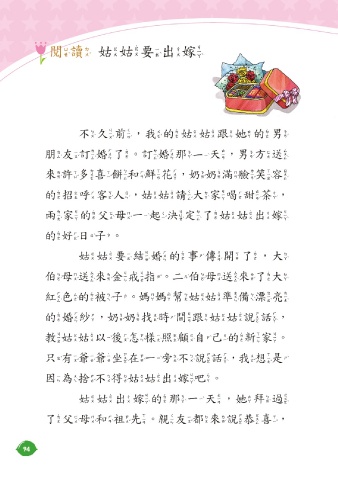 閱讀 姑姑要出嫁
不久前，我的姑姑跟她的男
朋友訂婚了。訂婚那一天，男方送
來許多喜餅和鮮花，奶奶滿臉笑容
的招呼客人，姑姑請大家喝甜茶，
兩家的父母一起決定了姑姑出嫁
的好日子。
姑姑要結婚的事傳開了，大
伯母送來金戒指。二伯母送來了大
紅色的被子。媽媽幫姑姑準備漂亮
的婚紗，奶奶找時間跟姑姑說話，
教姑姑以後怎樣照顧自己的新家。
只有爺爺坐在一旁不說話，我想是
因為捨不得姑姑出嫁吧。
姑姑出嫁的那一天，她拜過
了父母和祖先。親友都來說恭喜，
94